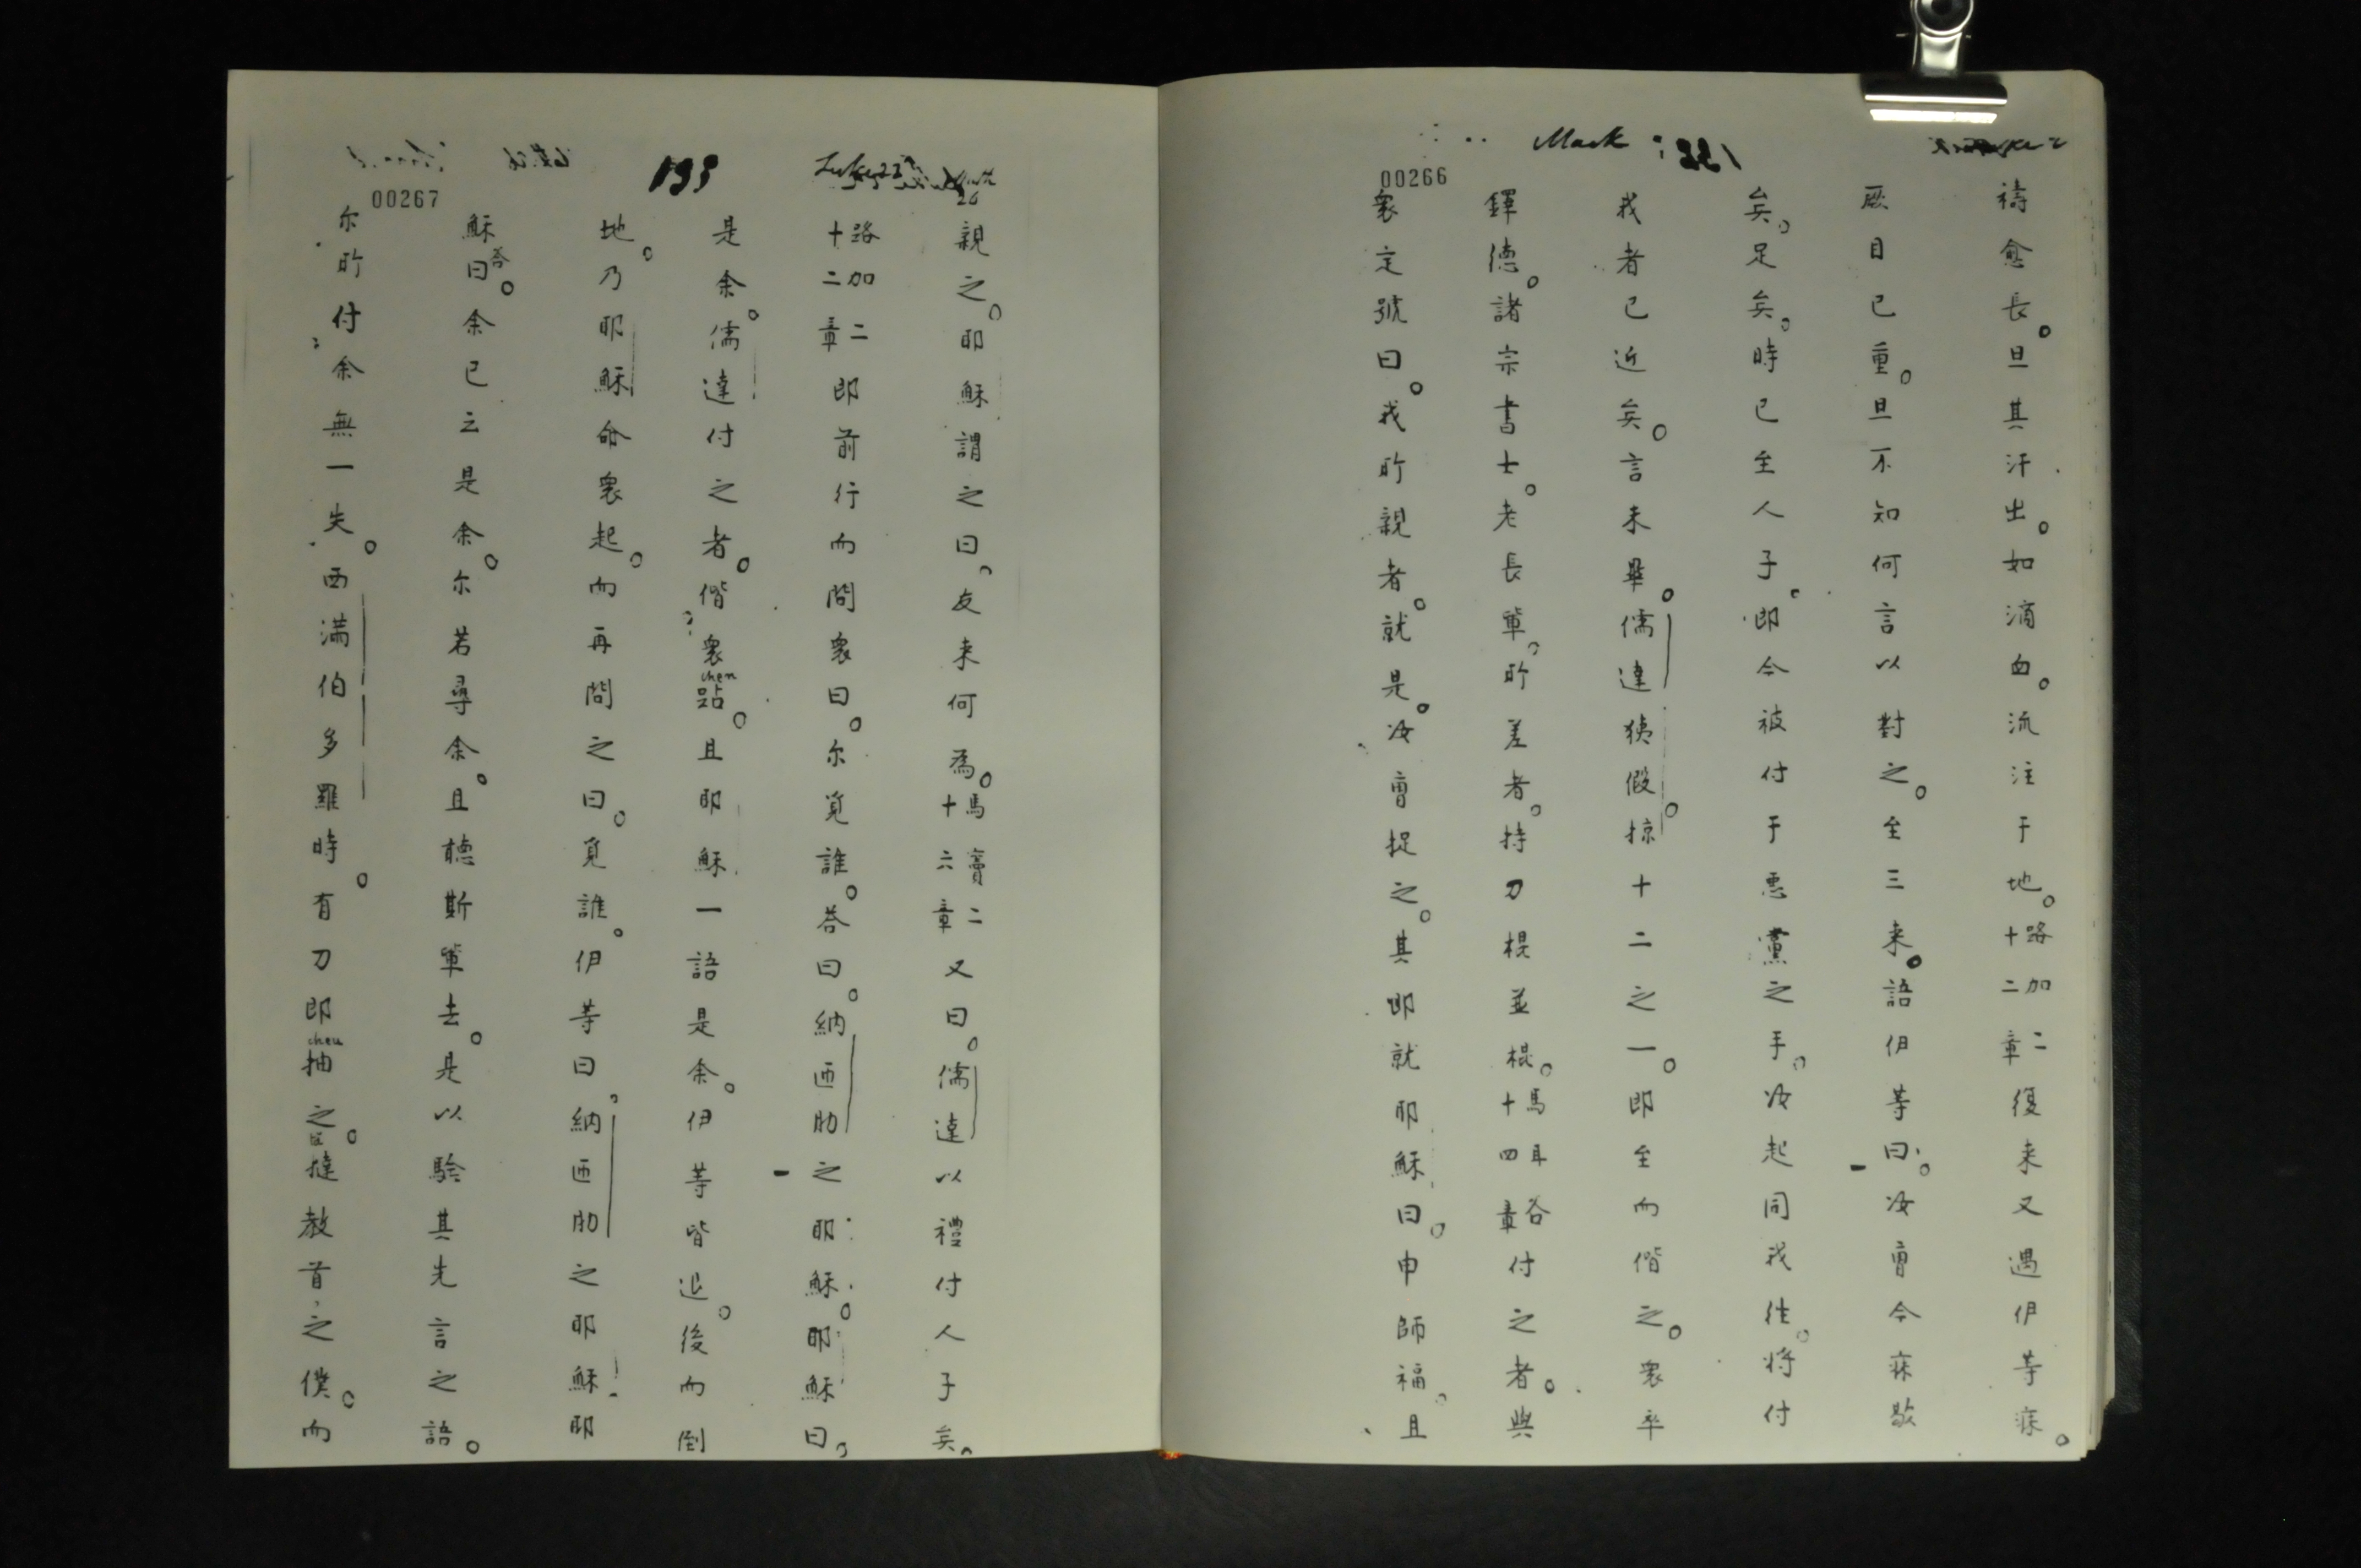 Mark
00266
禱愈長。旦其汗出。如滴血。流注于地。路加二十二章復来又遇伊等寐。
厥目已重。旦不知何言以對之。至三来。語伊等曰。汝曹今寐歇
矣。足矣。時已至人子。即今被付于悪黨之手。汝起同我往。将付
我者已近矣。言未畢。儒達猗假掠十二之一。即至而偕之。衆卒
鐸徳。諸宗書士。老長軰。所差者。持刀棍並棍。馬耳谷十四章付之者。與
衆定號曰。我所親者。就是。汝曹捉之。其即就耶穌曰。申師福。且
Luke 22
193
00267
26
親之。耶穌謂之曰。友来何為。馬竇二十六章又曰。儒達以禮付人子矣。
路加二十二章即前行而問衆曰。尔覓誰。荅曰。納匝肋之耶穌。耶穌曰。
是余。儒達付之者。偕衆跕。且耶穌一語是余。伊等皆退。後而倒
chen
地。乃耶穌命衆起。而再問之曰。覓誰。伊等曰。納匝肋之耶穌。耶
穌荅曰。余已云是余。尔若尋余。且聴斯軰去。是以驗其先言之語。
尔所付余無一失。西满伯多羅時。有刀即抽之。撻教首之僕。而
cheu